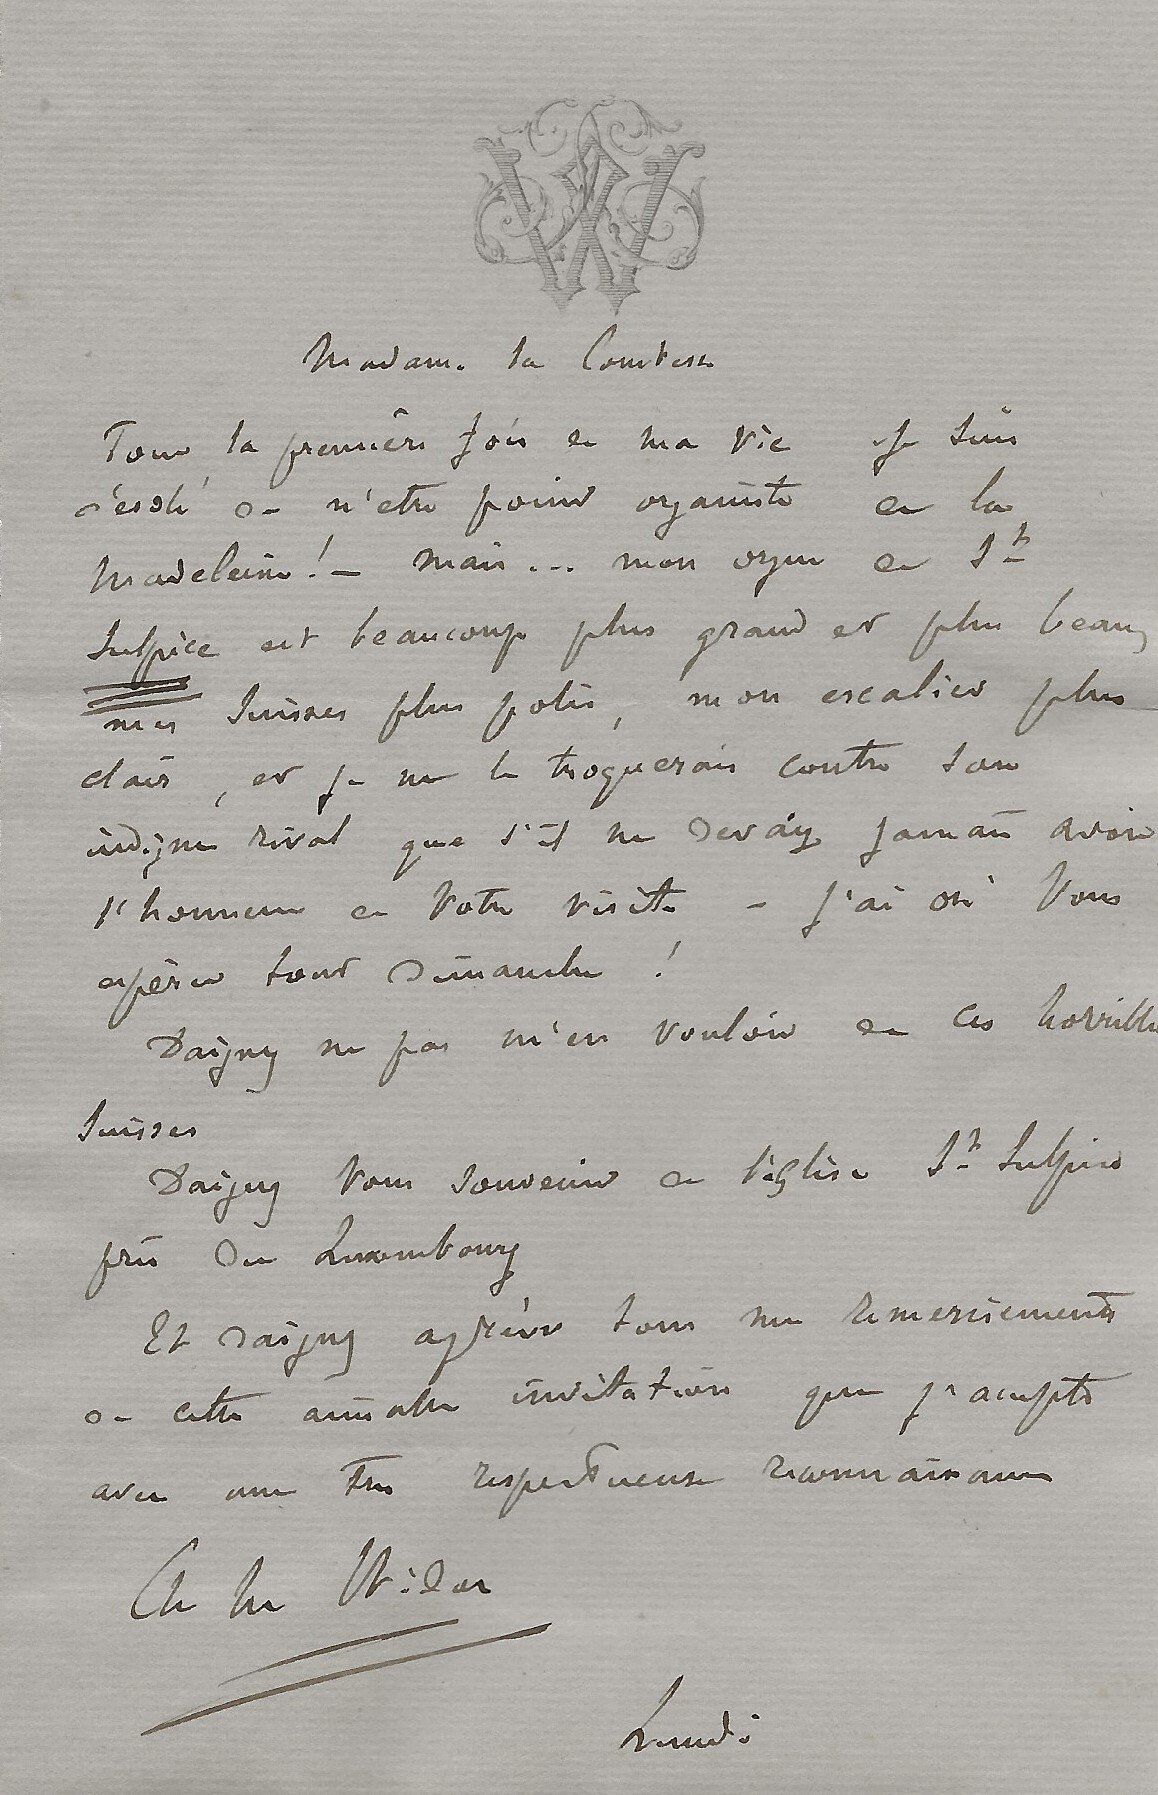 W
Madame la Comtesse
Pour la première fois de ma vie je suis
désolé de n'être point organiste de la
Madeleine! – Mais... mon orgue de St
Sulpice est beaucoup plus grand et plus beau,
mes Suisses plus polis, mon escalier plus
clair, et je ne le troquerais contre son
indigne rival que s'il ne devait jamais avoir
l'honneur de votre visite – j'ai osé vous
espérer tout Dimanche!
Daignez ne pas m'en vouloir de ces horribles
Suisses
Daignez vous souvenir de l'église St Sulpice
près du Luxembourg
Et daignez agréer tous mes remerciements
de cette aimable invitation que j'accepte
avec une très respectueuse reconnaissance
Ch M Widor
Lundi